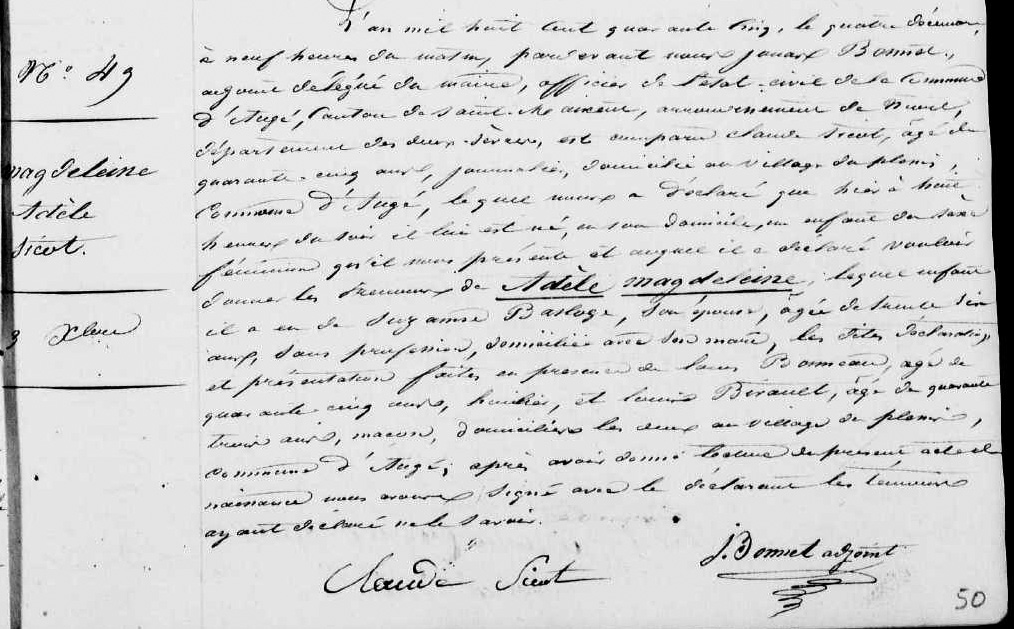 N° 49
magdeleine
Adèle
Sicot.
3 Xbre
L'an mil huit cent quarante cinq, le quatre décembre,
à neuf heures du matin, pardevant nous jouaux Bonnet,
adjoint délégué du maire, officier de l'état-civil de la Commune
d'Augé, Canton de Saint-Maixent, arrondissement de Niort,
département des deux-Sèvres, est comparu claude Sicot, âgé de
quarante-cinq ans, journalier, domicilié au village du plenis,
Commune d'Augé, lequel nous a déclaré que hier à huit
heures du soir il lui est né, en son domicile, un enfant du sexe
féminin qu'il nous présente et auquel il a déclaré vouloir
donner les prénoms de Adèle magdeleine, lequel enfant
il a eu de Suzanne Barloge, son épouse, âgée de trente six
ans, sans profession, domiciliée avec son mari, les dites déclaration
et présentation faites en présence de Bonneau, âgé de
quarante-cinq ans, huilier, et louis Birault, âgé de quarante
trois ans, maçon, domiciliés les deux au village du plenis,
Commune d'Augé; après avoir donné lecture du présent acte de
naissance nous avons signé avec le déclarant les témoins
ayant déclaré ne le savoir.
Claude Sicot
J. Bonnet adjoint
50